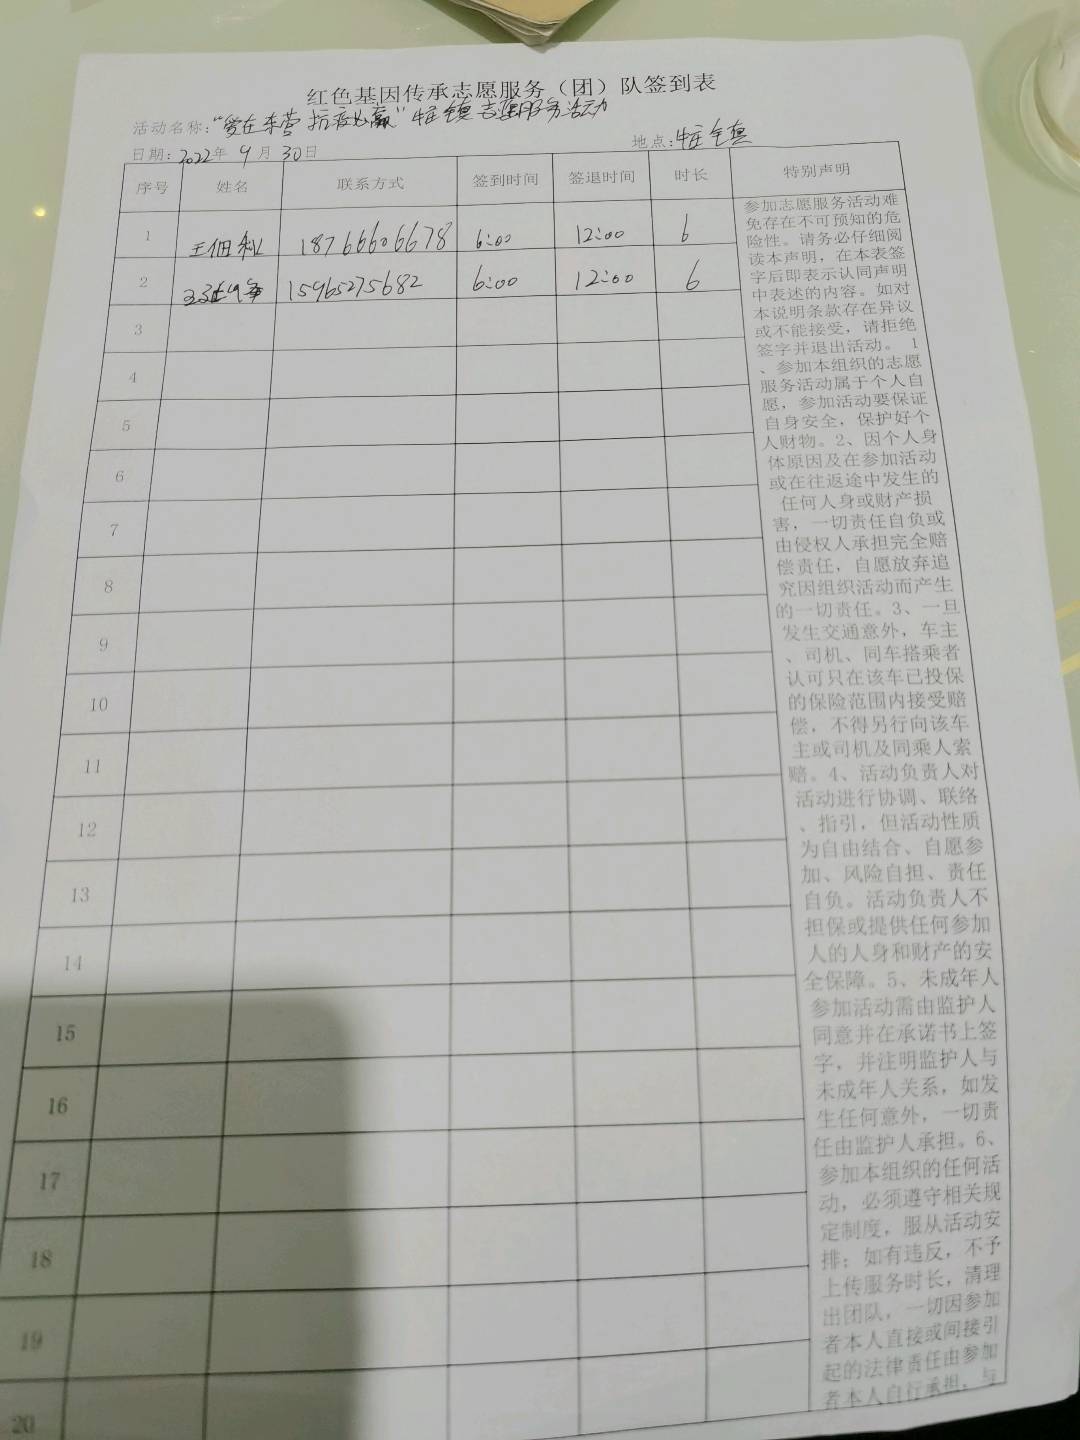 红色基因传承志愿服务（团）队签到表
活动名称："爱在东营 抗疫必赢"牛庄镇志愿服务活动
日期：2022年 9月 30日 地点：牛庄镇
序号 姓名 联系方式 签到时间 签退时间 时长 特别声明
1 王佃 18766606678 6:00 12:00 6
2 15965275682 6:00 12:00 6
3
4
5
6
7
8
9
10
11
12
13
14
15
16
17
18
19
20
参加志愿服务活动难
免存在不可预知的危
险性。请务必仔细阅
读本声明，在本表签
字后即表示认同声明
中表述的内容。如对
本说明条款存在异议
或不能接受，请拒绝
签字并退出活动。 1
、参加本组织的志愿
服务活动属于个人自
愿，参加活动要保证
自身安全，保护好个
人财物。2、因个人身
体原因及在参加活动
或在往返途中发生的
任何人身或财产损
害，一切责任自负或
由侵权人承担完全赔
偿责任，自愿放弃追
究因组织活动而产生
的一切责任。3、一旦
发生交通意外，车主
、司机、同车搭乘者
认可只在该车已投保
的保险范围内接受赔
偿，不得另行向该车
主或司机及同乘人索
赔。4、活动负责人对
活动进行协调、联络
、指引，但活动性质
为自由结合、自愿参
加、风险自担、责任
自负。活动负责人不
担保或提供任何参加
人的人身和财产的安
全保障。5、未成年人
参加活动需由监护人
同意并在承诺书上签
字，并注明监护人与
未成年人关系，如发
生任何意外，一切责
任由监护人承担。6、
参加本组织的任何活
动，必须遵守相关规
定制度，服从活动安
排；如有违反，不予
上传服务时长，清理
出团队，一切因参加
者本人直接或间接引
起的法律责任由参加
者本人自行承担，与